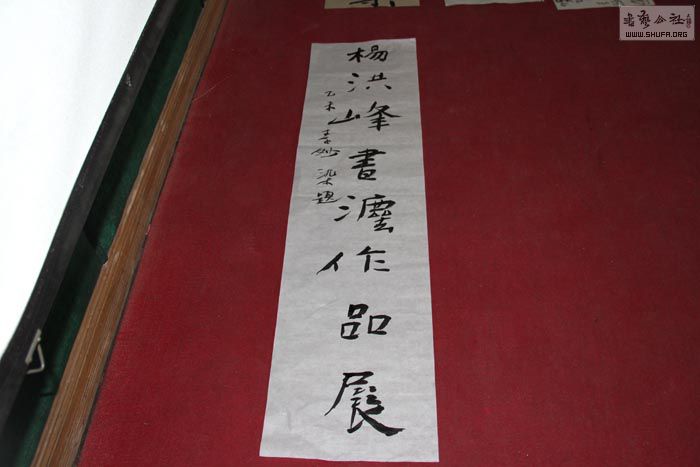 楊洪峰書灋作品展
乙未
染題
書藝公社
WWW.SHUFA.ORG